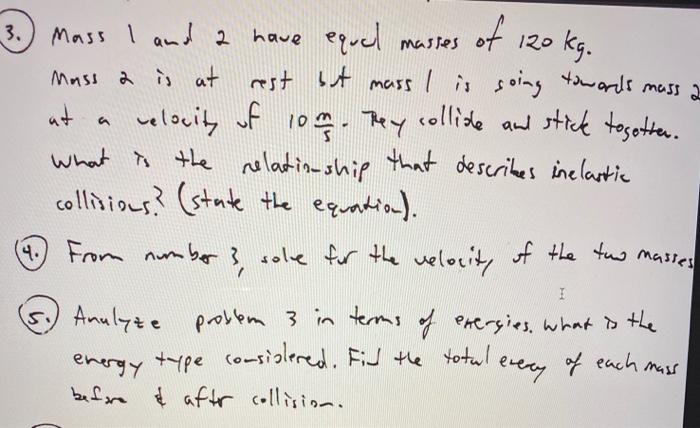 3. Mass 1 and 2 have equal masses of 120 kg.
Mass 2 is at rest but mass 1 is going towards mass 2
at a velocity of 10 m/s. They collide and stick together.
What is the relationship that describes inelastic
collisions? (state the equation).
4. From number 3, solve for the velocity of the two masses
5. Analyze problem 3 in terms of energies. What is the
energy type considered. Find the total energy of each mass
before & after collision.